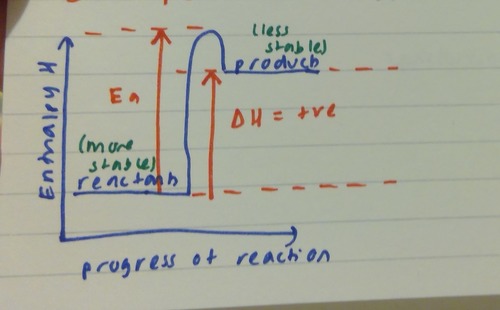 (less
stable)
product
Ea
ΔH = +ve
(more
stable)
reactants
Enthalpy H
progress of reaction